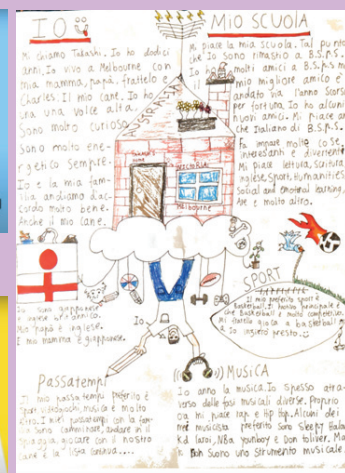 IO
Mi chiamo Takashi. Io ho dodici
anni. Io vivo a Melbourne con
mia mamma, papà, fratello e
Charles. Il mio cane. Io ho
una volce alta.
Sono molto curioso
Sono molto ene-
rgetico sempre.
Io e la mia fam-
ilia andiamo d'ac-
cordo molto bene.
Anche il mio cane.
AUSTRALIA
Melbourne
MIO SCUOLA
Mi piace la mia scuola. Tal punto
che Io sono rimasto a B.S.P.S.
Io ho molti amici a B.S.P.S
mio migliore amico è
andato via l'anno scorso
per fortuna Io ho alcuni
nuovi amici. Mi piace an
che Italiano di B.S.P.S.
Fa impare molte cose
interesanti e divertenti
Mi piace lettura, scritura,
inglese, sport, Humanities
Social and emotional learning,
Art e molto altro.
Io sono giapponese
e inglese
Mio papà è inglese.
E mia mamma è giapponese.
Io
SPORT
Il mio preferito sport è
basketball. Il
che Basketball è molto competitivo.
Mi fratello gioca a basketball
e Io
presto
Passatempi
Il mio passatempo preferito è
sport, videogiochi, musica e molto
altro. I miei passatempi con la fam-
sono camminare, andare in
spiaggia, giocare con il nostro
cane e la lista continua....
MUSICA
Io amo la musica. Io spesso
verso delle fasi musicali diverse. Proprio
mi piace rap e hip hop. Alcuni dei
miei musicista preferito sono Sleepy Hallo
Kid laroi, NBA youngboy e Don toliver. Ma
Io non suono uno strumento musicale.